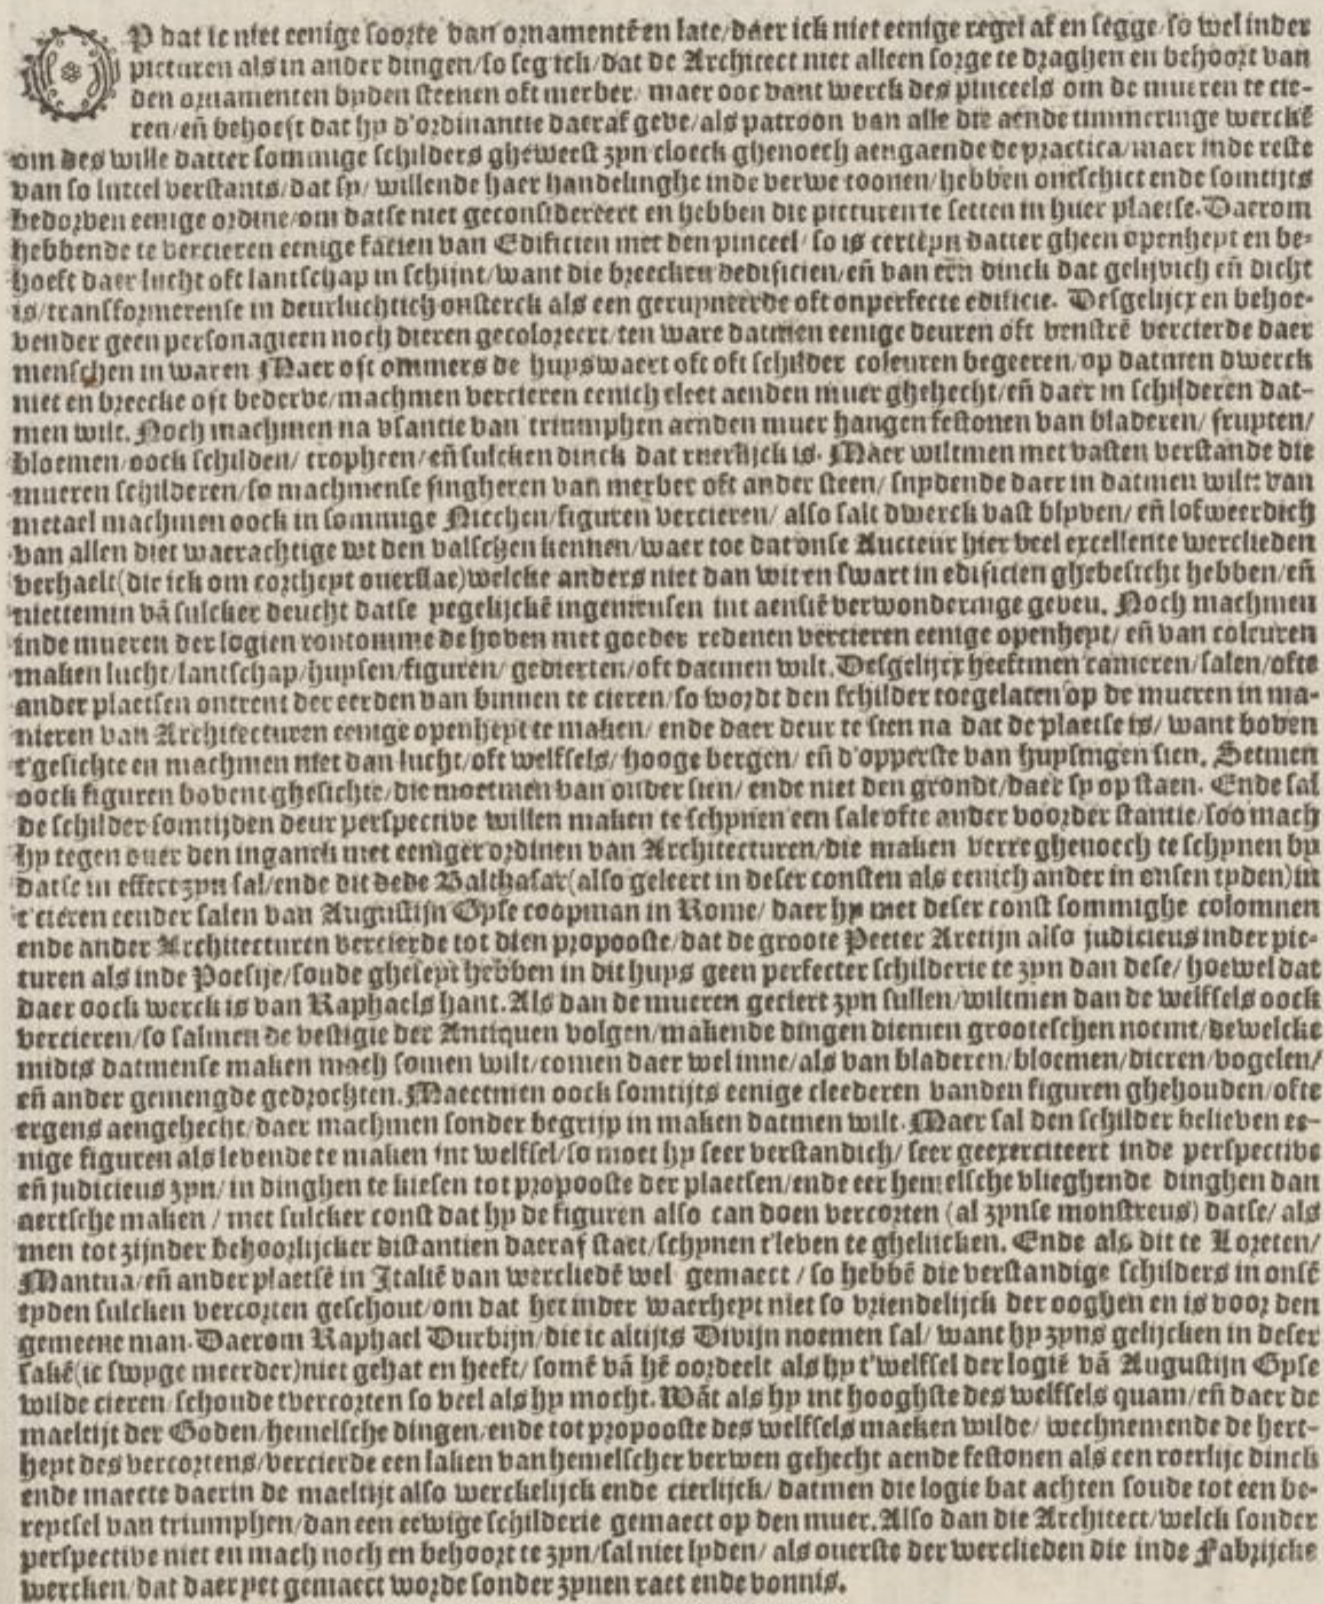 OP dat ic niet eenige soorte van ornamentē en late/daer ick niet eenige regel af en segge/so wel inder
picturen als in ander dingen/so seg ick/dat de Architect niet alleen sorge te draghen en behoort van
den ornamenten byden steenen oft merber/ maer ooc vant werck des pinceels om de mueren te cie-
ren/eñ behoeft dat hy d'ordinantie daeraf geve/als patroon van alle die aende timmeringe werckē
om des wille datter sommige schilders gheweest zyn cloeck ghenoech aengaende de practica/maer inde reste
van so luttel verstants/dat sy/ willende haer handelinghe inde verwe toonen/hebben onteschict ende somtijts
bedorven eenige ordine/om datse niet geconsidereert en hebben die picturen te setten in huer plaetse. Daerom
hebbende te vercieren eenige facien van Edificien met den pinceel/ so is certeyn datter gheen openheyt en be-
hoeft daer lucht oft lantschap in schijnt/want die breecken dedificien/eñ van een dinck dat gelijvich eñ dicht
is/transformerense in deurluchtich onsterck als een geruyneerde oft onperfecte edificie. Desgelijcx en behoe-
vender geen personagieen noch dieren gecoloreert/ten ware datmen eenige deuren oft venstrē vercierde daer
menschen in waren Maer oft ommers de huyswaert oft oft schilder coleuren begeeren/op datmen dwerck
niet en breecke oft bederve/machmen vercieren eenich cleet aenden muer ghehecht/eñ daer in schilderen dat-
men wilt. Noch machmen na usantie van triumphen aenden muer hangen festonen van bladeren/ fruyten/
bloemen/oock schilden/ tropheen/eñ sulcken dinck dat ruerlijck is. Maer wiltmen met vasten verstande die
mueren schilderen/so machmense fingheren van merber oft ander steen/ snydende daer in datmen wilt: van
metael machmen oock in sommige Niechen/figuren vercieren/ also salt dwerck vast blyven/ eñ lofweerdich
van allen diet waerachtige wt den valschen kennen/waer toe dat onse Aucteur hier veel excellente werclieden
verhaelt(die ick om cortheyt overslae)welcke anders niet dan wit en swart in edificien ghebesicht hebben/eñ
niettemin vā sulcker deucht datse yegelijckē ingenieusen int aensiē verwonderinge geven. Noch machmen
inde mueren der logien rontomme de hoven met goeder redenen vercieren eenige openheyt/ eñ van coleuren
maken lucht/lantschap/huysen/figuren/ gedierten/oft datmen wilt. Desgelijcx heeftmen cameren/salen/ofte
ander plaetsen ontrent der eerden van binnen te cieren/so wordt den schilder toegelaten op de mueren in ma-
nieren van Architecturen eenige openheyt te maken/ ende daer deur te sien na dat de plaetse is/ want boven
t'gesichte en machmen niet dan lucht/oft welfsels/hooge bergen/ eñ d'opperste van huysingen sien. Setmen
oock figuren bovent ghesichte/die moetmen van onder sien/ ende niet den grondt/daer sy op staen. Ende sal
de schilder somtijden deur perspective willen maken te schynen een sale ofte ander voorder stantie/soo mach
hy tegen over den inganck met eeniger ordinen van Architecturen/die maken verre ghenoech te schynen by
datse in effect zyn sal/ende dit dede Balthasar(also geleert in deser consten als eenich ander in onsen tyden)in
t'cieren eender salen van Augustijn Gyse coopman in Rome/ daer hy met deser const sommighe colomnen
ende ander Architecturen vercierde tot dien propooste/dat de groote Peeter Aretijn also judicieus inder pic-
turen als inde Poesije/soude gheseyt hebben in dit huys geen perfecter schilderie te zyn dan dese/ hoewel dat
daer oock werck is van Raphaels hant. Als dan de mueren geciert zyn sullen/wiltmen dan de welfsels oock
vercieren/so salmen de vestigie der Antiquen volgen/makende dingen diemen grooteschen noemt/dewelcke
midts datmense maken mach somen wilt/comen daer wel inne/als van bladeren/bloemen/dieren/vogelen/
eñ ander gemengde gedrochten. Maectmen oock somtijts eenige cleederen vanden figuren ghehouden/ofte
ergens aengehecht/daer machmen sonder begrijp in maken datmen wilt. Maer sal den schilder believen ee-
nige figuren als levende te maken int welfsel/so moet hy seer verstandich/ seer geexerciteert inde perspective
eñ judicieus zyn/ in dinghen te kiesen tot propooste der plaetsen/ende eer hemelsche vlieghende dinghen dan
aertsche maken / met sulcker const dat hy de figuren also can doen vercorten (al zynse monstreus) datse/ als
men tot zijnder behoorlijcker distantien daeraf staet/schynen t'leven te ghelijcken. Ende als dit te Loreten/
Mantua/eñ ander plaetsē in Italiē van wercliedē wel gemaect / so hebbē die verstandige schilders in onsē
tyden sulcken vercorten geschout/om dat het inder waerheyt niet so vriendelijck der ooghen en is voor den
gemeene man. Daerom Raphael Durbijn/die ic altijts Divijn noemen sal/ want hy zyns gelijcken in deser
sakē(ic swyge meerder)niet gehat en heeft/ somē vā hē oordeelt als hy t'welfsel der logiē vā Augustijn Gyse
wilde cieren/schoude tvercorten so veel als hy mocht. Wāt als hy int hooghste des welfsels quam/eñ daer de
maeltijt der Goden/hemelsche dingen/ende tot propooste des welfsels maeken wilde/ wechnemende de hert-
heyt des vercortens/vercierde een laken van hemelscher verwen gehecht aende festonen als een roerlijc dinck
ende maecte daerin de maeltijt also werckelijck ende cierlijck/ datmen die logie bat achten soude tot een be-
reytsel van triumphen/dan een eewige schilderie gemaect op den muer. Also dan die Architect/welck sonder
perspective niet en mach noch en behoort te zyn/sal niet lyden/ als overste der werclieden die inde Fabrijcke
wercken/dat daer yet gemaect worde sonder zynen raet ende vonnis.